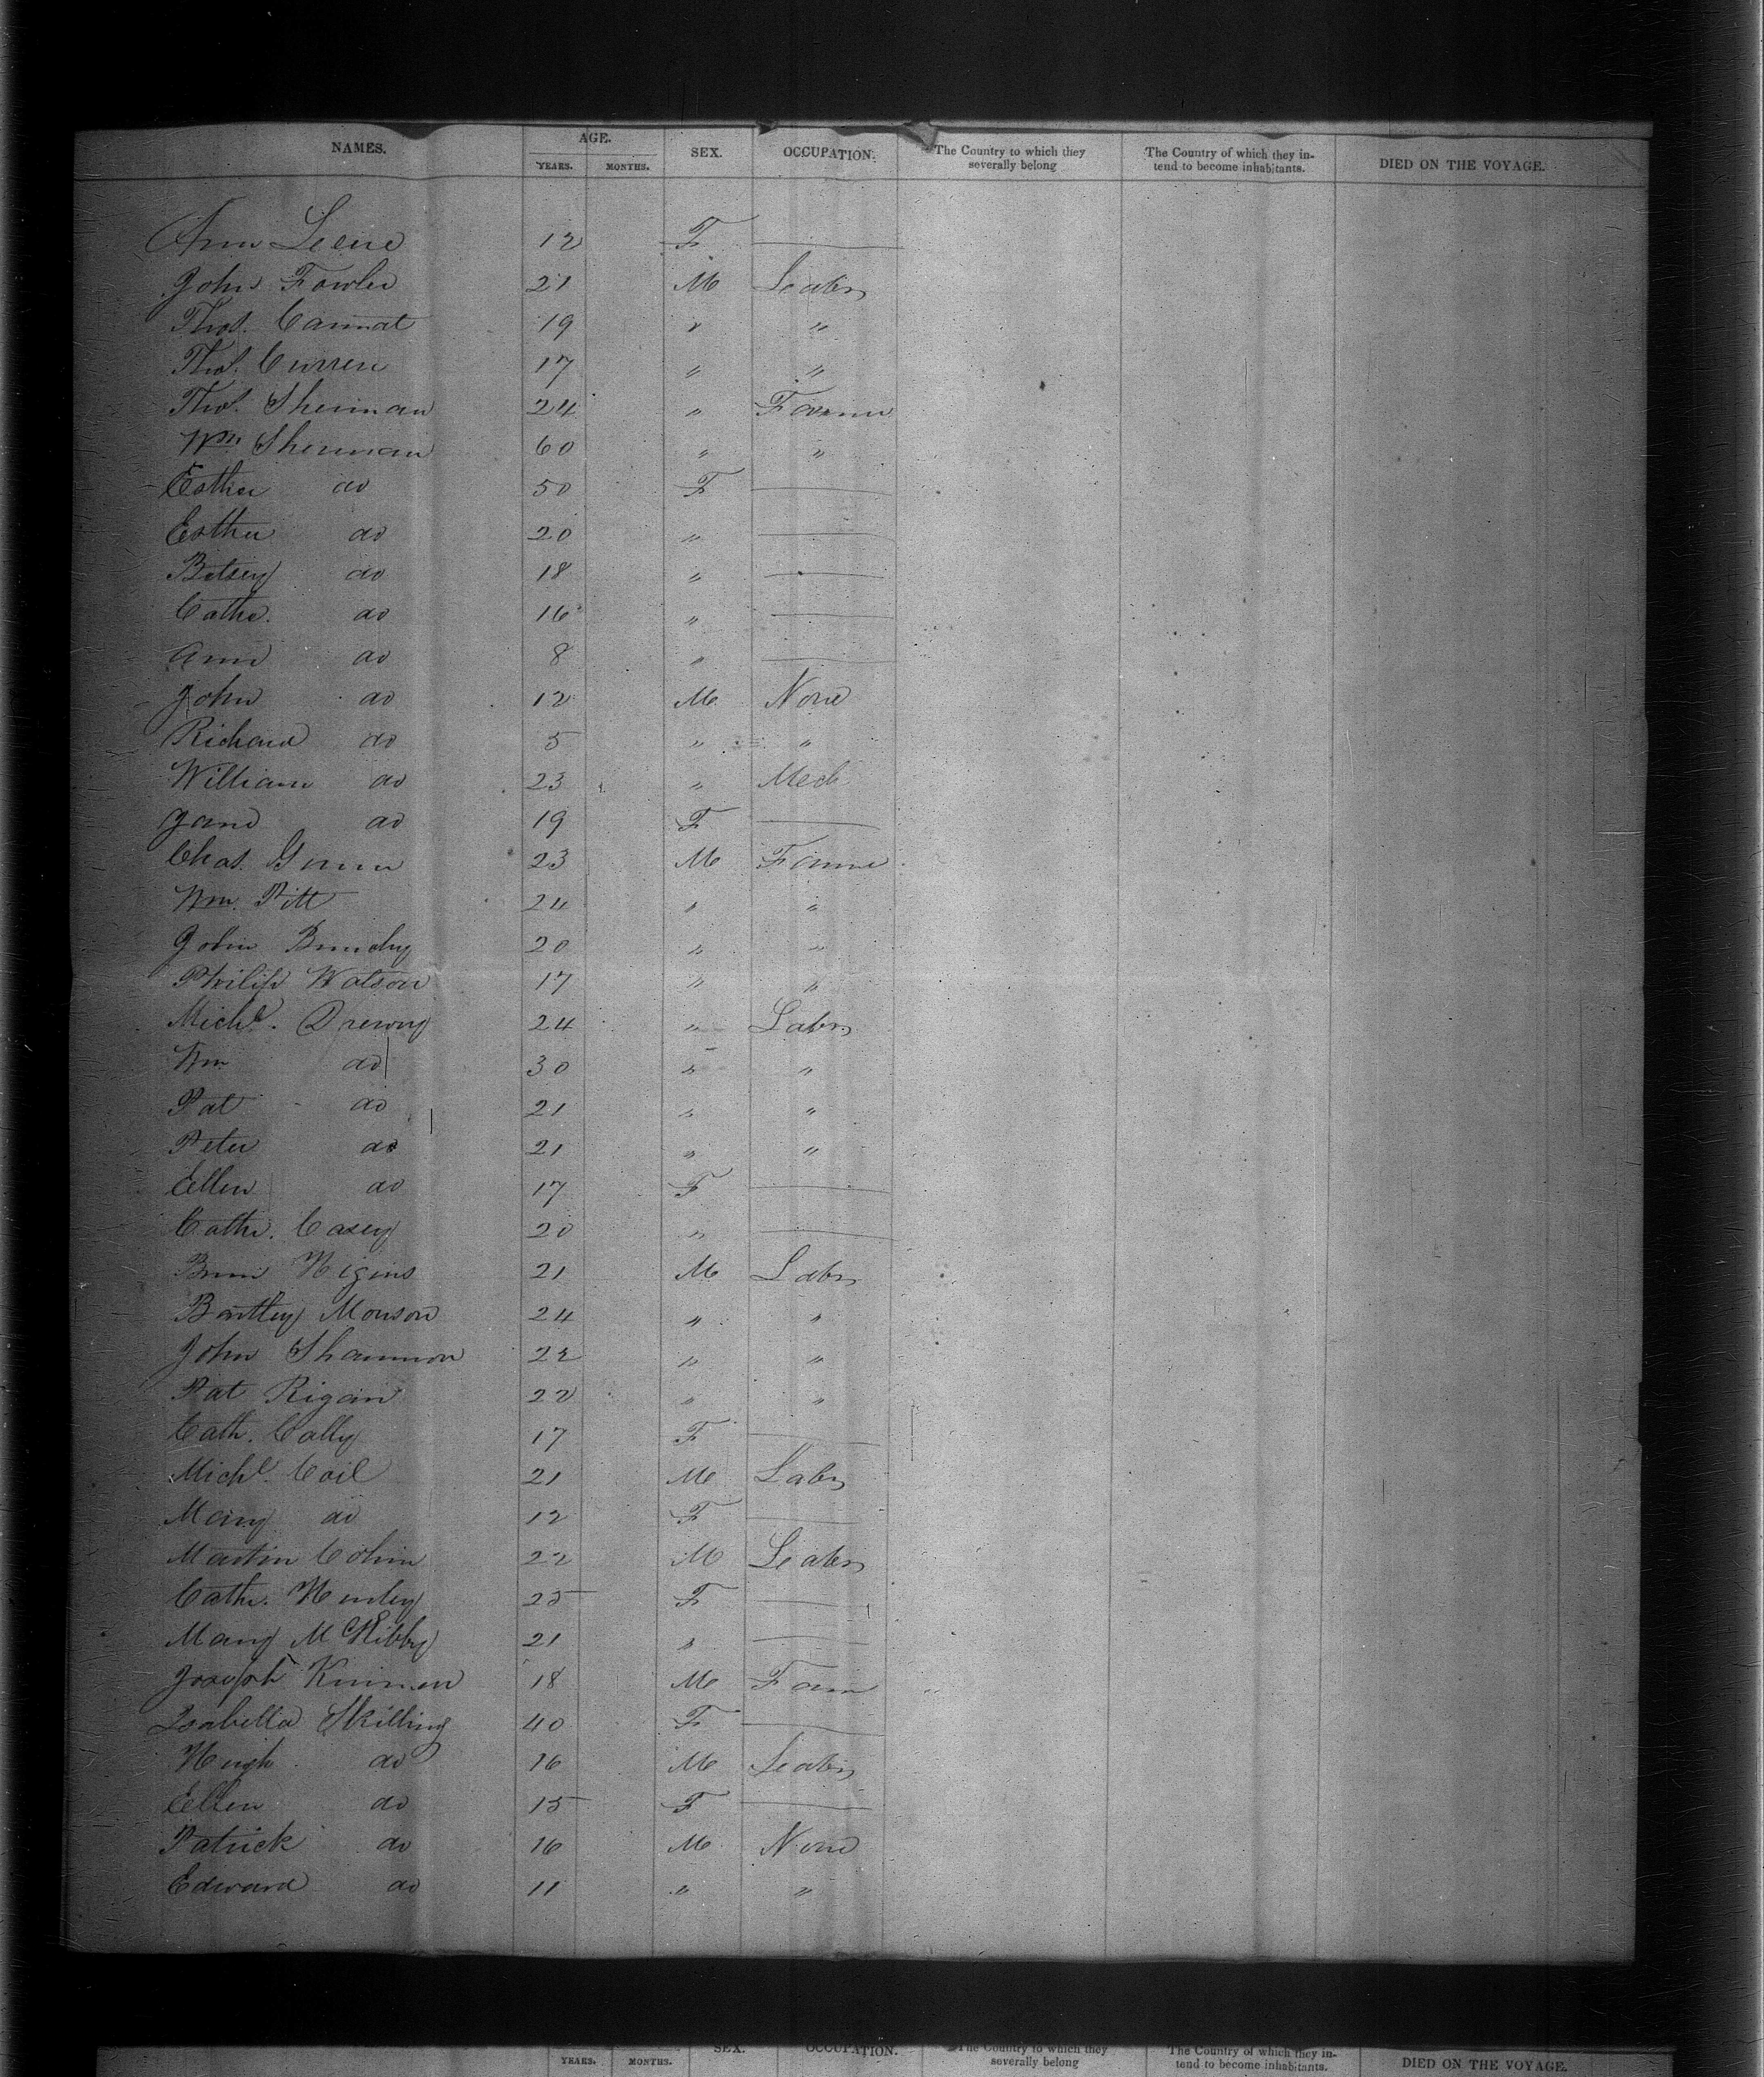 NAMES. AGE. YEARS. MONTHS. SEX. OCCUPATION. The Country to which they severally belong The Country of which they intend to become inhabitants. DIED ON THE VOYAGE.
Ann 12 F
John Fowler 21 M Labr
Thos. 19 " "
Thos. Curren 17 " "
Thos. Sherman 24 " Farmer
Wm. Sherman 60 " "
Esther do 50 F
Esther do 20 "
Betsey do 18 "
Cathe. do 16 "
Ann do 8 "
John do 12 M None
Richard do 5 " "
William do 23 " Mech
Jane do 19 F
Chas. 23 M Farmer
Wm. Pitt 24 " "
John 20 " "
Philip Watson 17 " "
Michl. Drewry 24 " Labr
Wm do 30 " "
Pat do 21 " "
Peter do 21 " "
Ellen do 17 F
Cathe. Casey 20 "
Higins 21 M Labr
Bartley Monson 24 " "
John Shannon 22 " "
Pat Rigan 22 " "
Cath. Cally 17 F
Michl. Coil 21 M Labr
Mary do 12 F
Martin 22 M Labr
Cathe. 25 F
Mary 21 "
Joseph 18 M Farm
Isabella Skilling 40 F
Hugh do 16 M Labr
Ellen do 15 F
Patrick do 16 M None
Edward do 11 " "
YEARS. MONTHS. SEX. OCCUPATION. The Country to which they severally belong The Country of which they intend to become inhabitants. DIED ON THE VOYAGE.